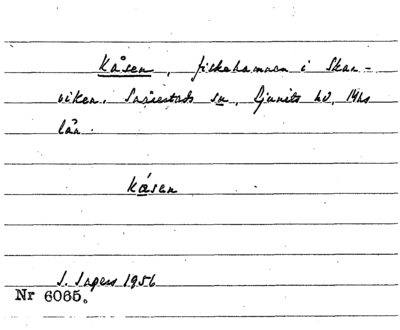 Kåsen, fiskehamnen i Skan-
viken. Snårestads sn, Ljunits hd, Mhs
län.
Kåsen
S. Ingers 1956
Nr 6065.